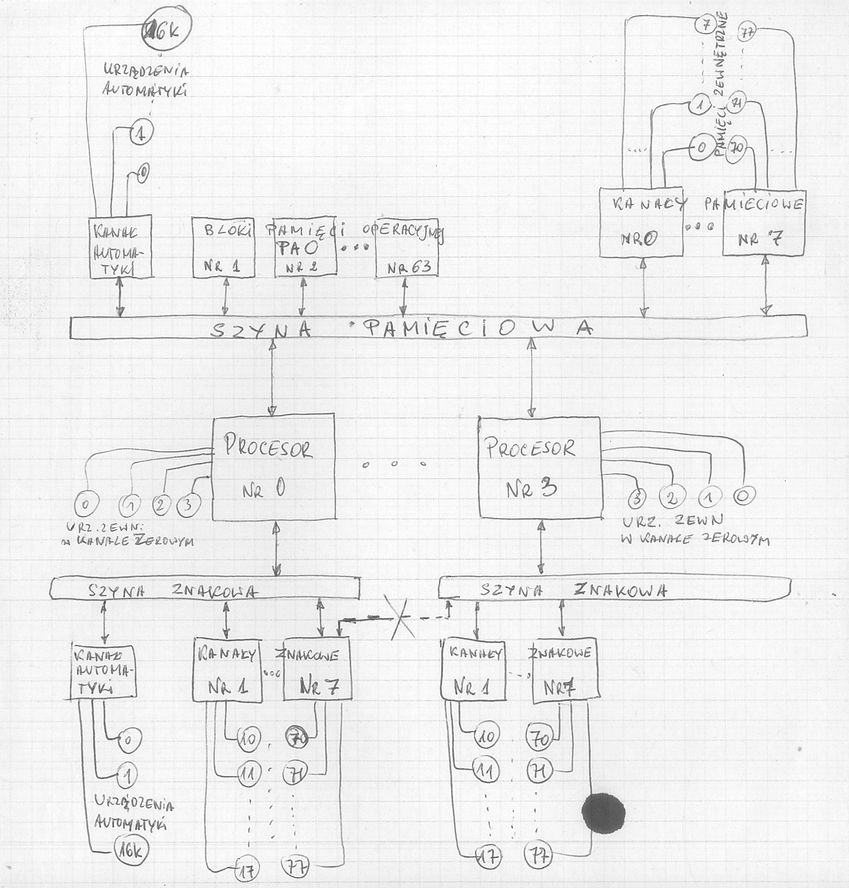 16K
URZĄDZENIA
AUTOMATYKI
1
0
7
77
PAMIĘCI ZEWNĘTRZNE
1
71
0
70
KANAŁ
AUTOMA-
TYKI
BLOKI PAMIĘCI OPERACYJNEJ
PAO
NR 1
NR 2
NR 63
KANAŁY PAMIĘCIOWE
NR 0
NR 7
SZYNA PAMIĘCIOWA
PROCESOR
NR 0
PROCESOR
NR 3
0 1 2 3
URZ. ZEWN.
W KANALE ZEROWYM
3 2 1 0
URZ. ZEWN
W KANALE ZEROWYM
SZYNA ZNAKOWA
SZYNA ZNAKOWA
KANAŁ
AUTOMA-
TYKI
KANAŁY ZNAKOWE
NR 1
NR 7
KANAŁY ZNAKOWE
NR 1
NR 7
0
1
URZĄDZENIA
AUTOMATYKI
16K
10
70
11
71
17
77
10
70
11
71
17
77